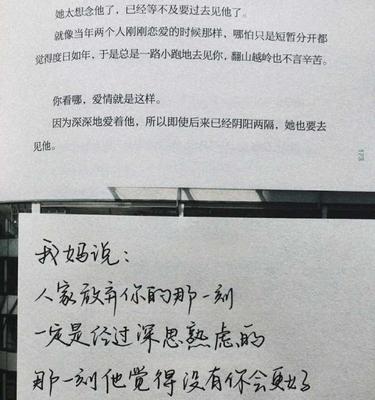 她太想念他了，已经等不及要过去见他了。
就像当年两个人刚刚恋爱的时候那样，哪怕只是短暂分开都
觉得度日如年，于是总是一路小跑地去见你，翻山越岭也不言辛苦。
你看哪，爱情就是这样。
因为深深地爱着他，所以即使后来已经阴阳两隔，她也要去
见他。
173
我妈说：
人家放弃你的那一刻
一定是经过深思熟虑的
那一刻他觉得没有你会更好